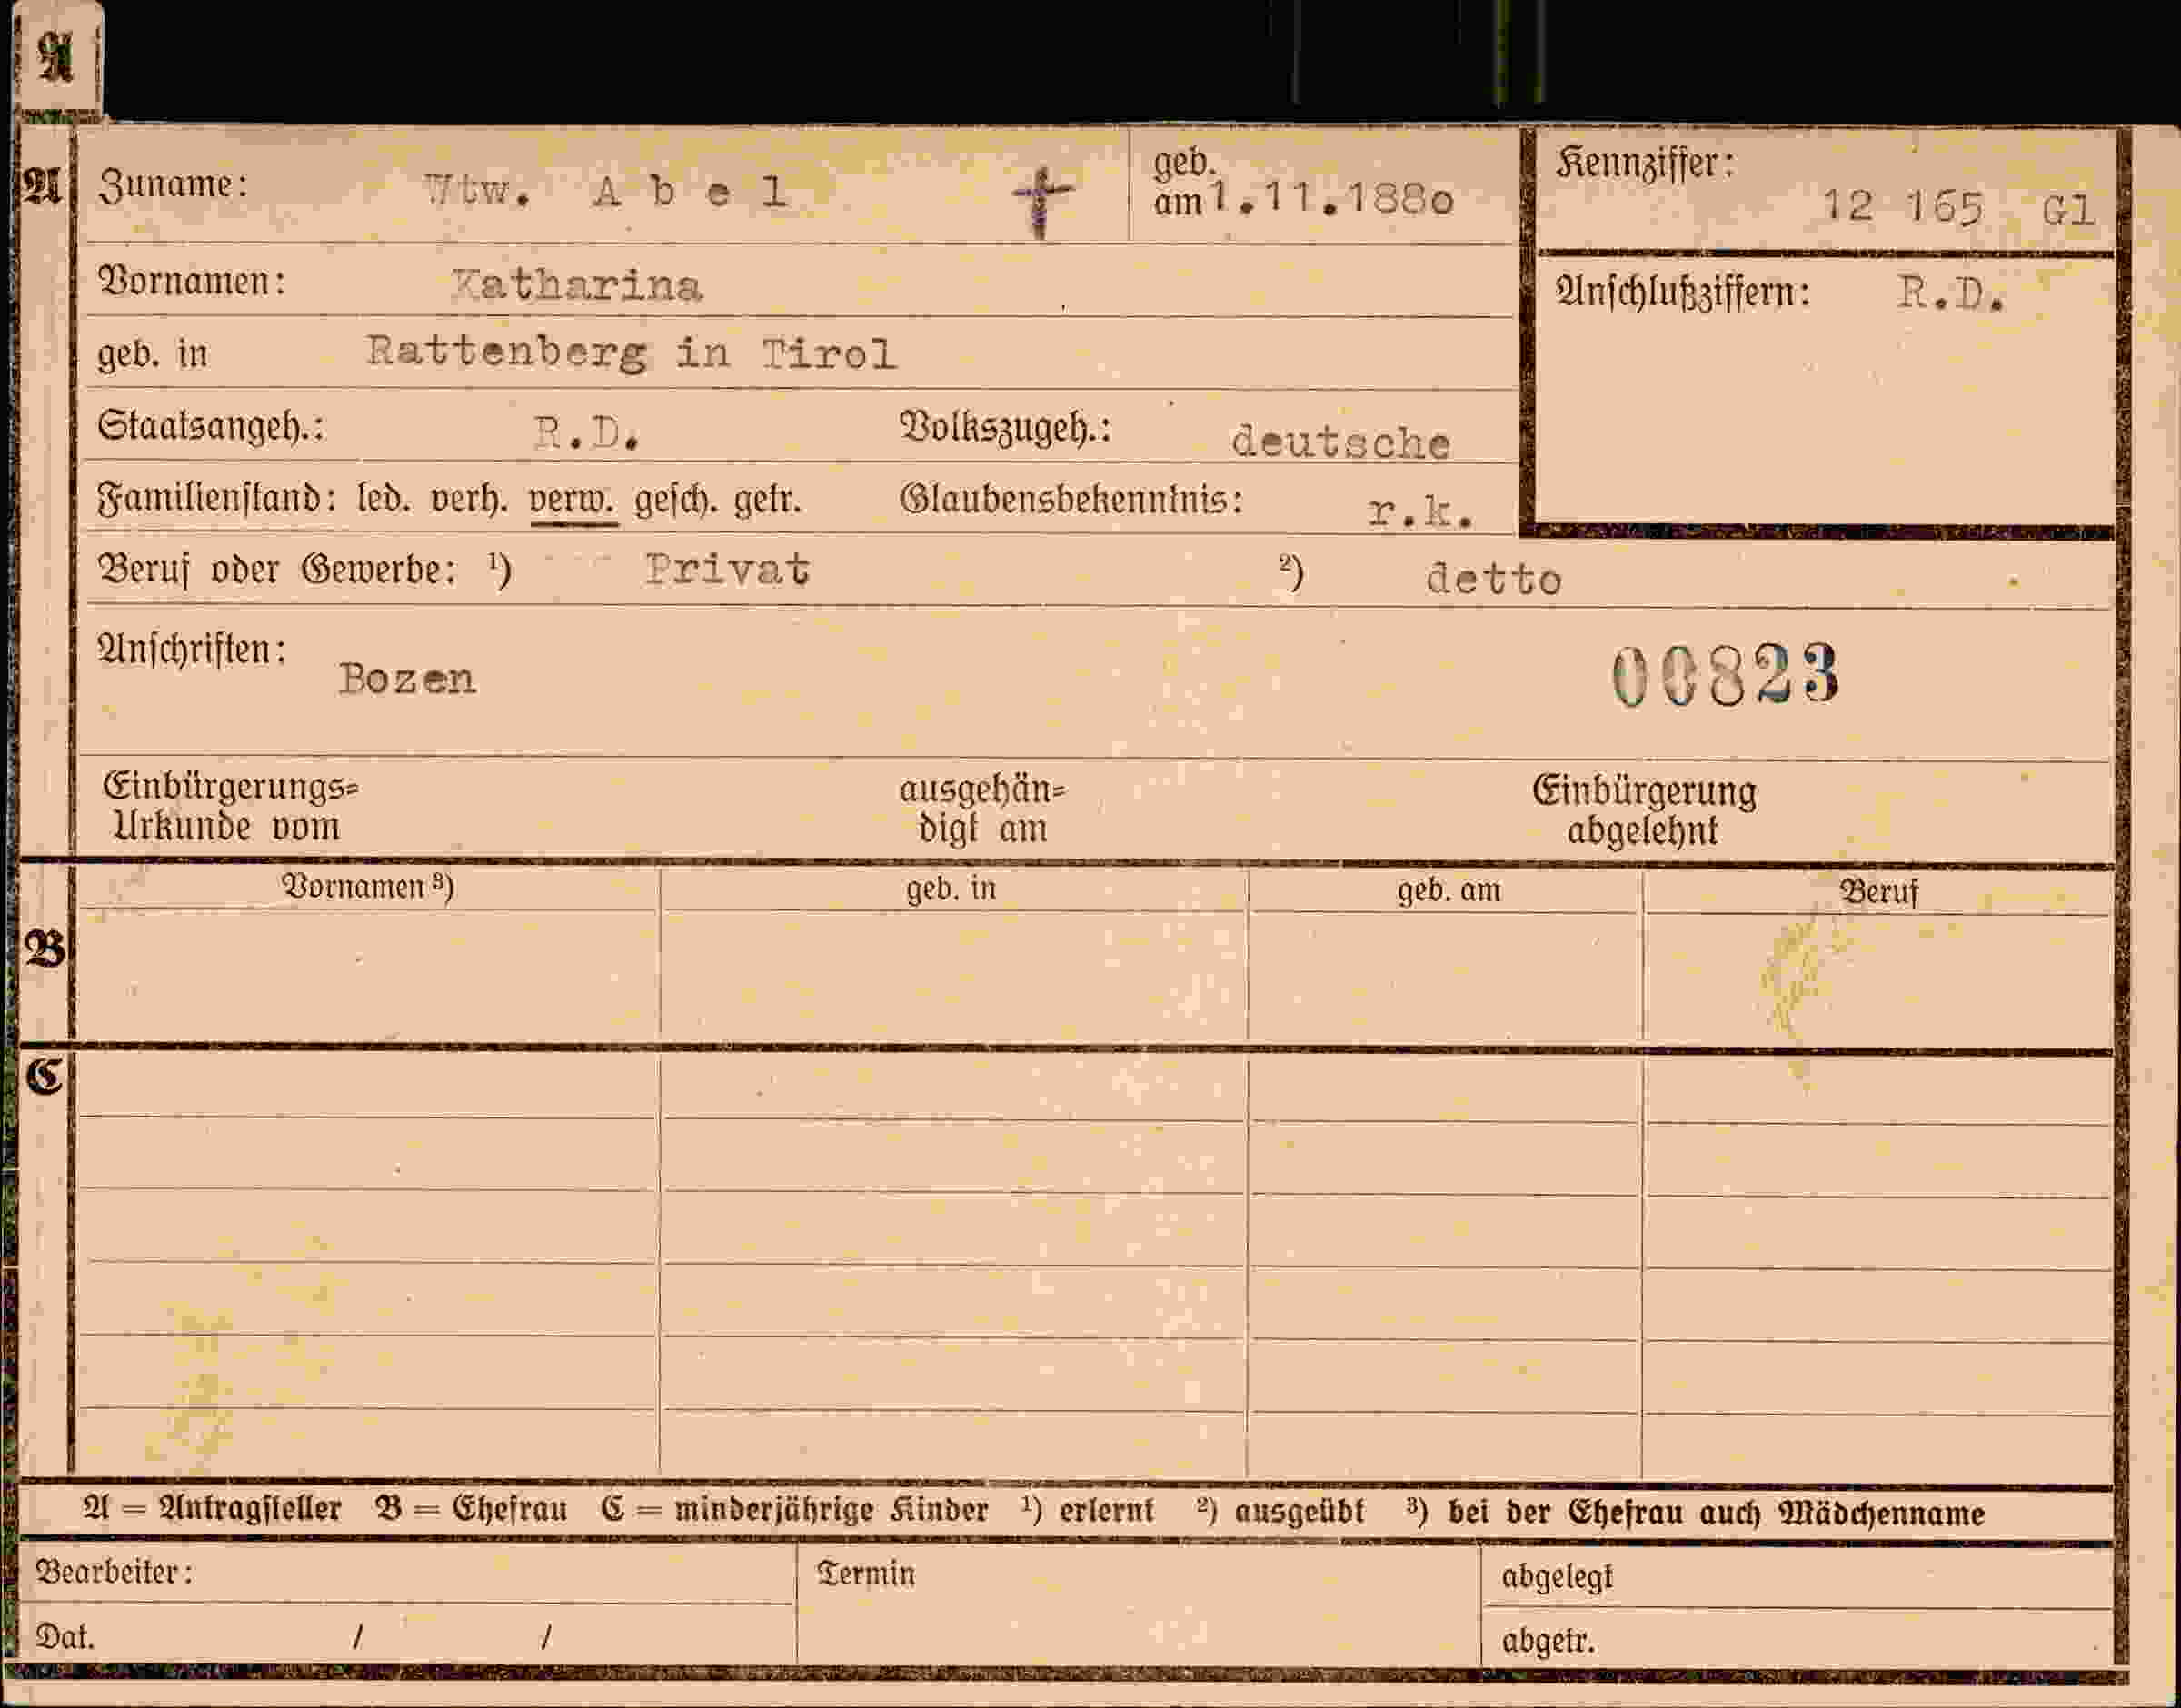 A
A Zuname: Wtw. A b e l † geb. am 1.11.1880 Kennziffer: 12 165 Gl
Vornamen: Katharina Anschlußziffern: R.D.
geb. in Rattenberg in Tirol
Staatsangeh.: R.D. Volkszugeh.: deutsche
Familienstand: led. verh. verw. gesch. getr. Glaubensbekenntnis: r.k.
Beruf oder Gewerbe: ¹) Privat ²) detto
Anschriften: Bozen 00823
Einbürgerungs= ausgehän= Einbürgerung
Urkunde vom digt am abgelehnt
Vornamen ³) geb. in geb. am Beruf
B
C
A = Antragsteller B = Ehefrau C = minderjährige Kinder ¹) erlernt ²) ausgeübt ³) bei der Ehefrau auch Mädchenname
Bearbeiter: Termin abgelegt
Dat. / / abgetr.